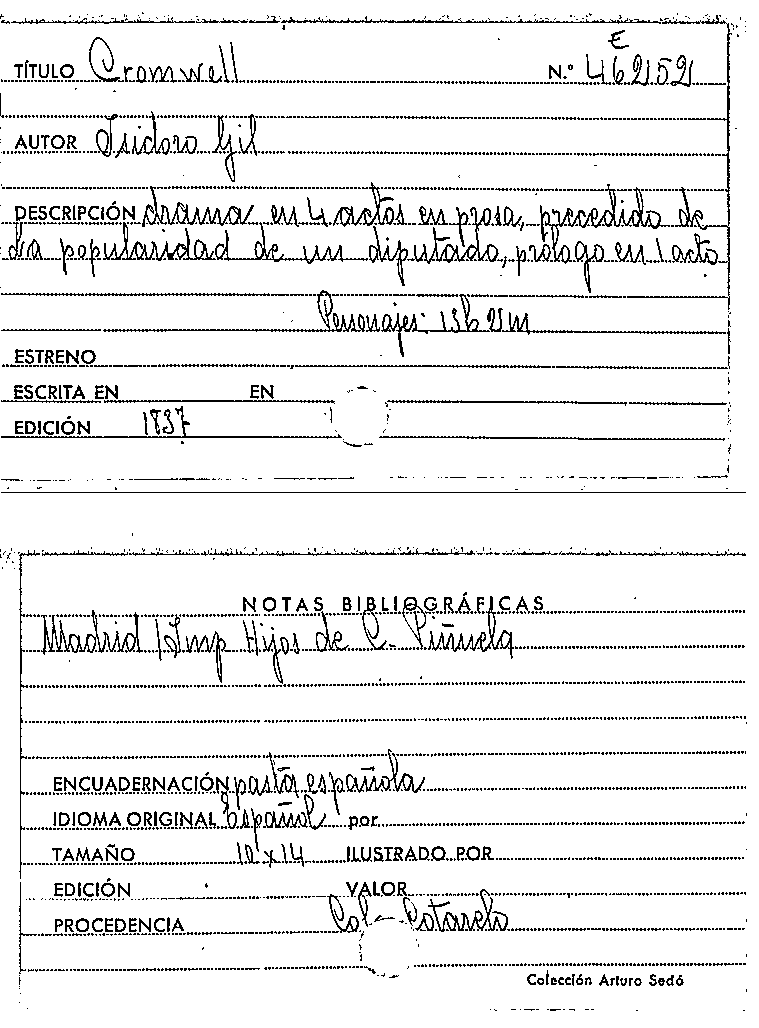 E
TÍTULO Cromwell N.º 46252
AUTOR Isidoro Gil
DESCRIPCIÓN drama en 4 actos en prosa, precedido de
La popularidad de un diputado, prólogo en 1 acto
Personajes: 13h 2m
ESTRENO
ESCRITA EN EN
EDICIÓN 1837
NOTAS BIBLIOGRÁFICAS
Madrid / Imp Hijos de C. Piñuela
ENCUADERNACIÓN pasta española
IDIOMA ORIGINAL Español por
TAMAÑO 10'x14 ILUSTRADO POR
EDICIÓN VALOR
PROCEDENCIA Col- Cotarelo
Colección Arturo Sedó